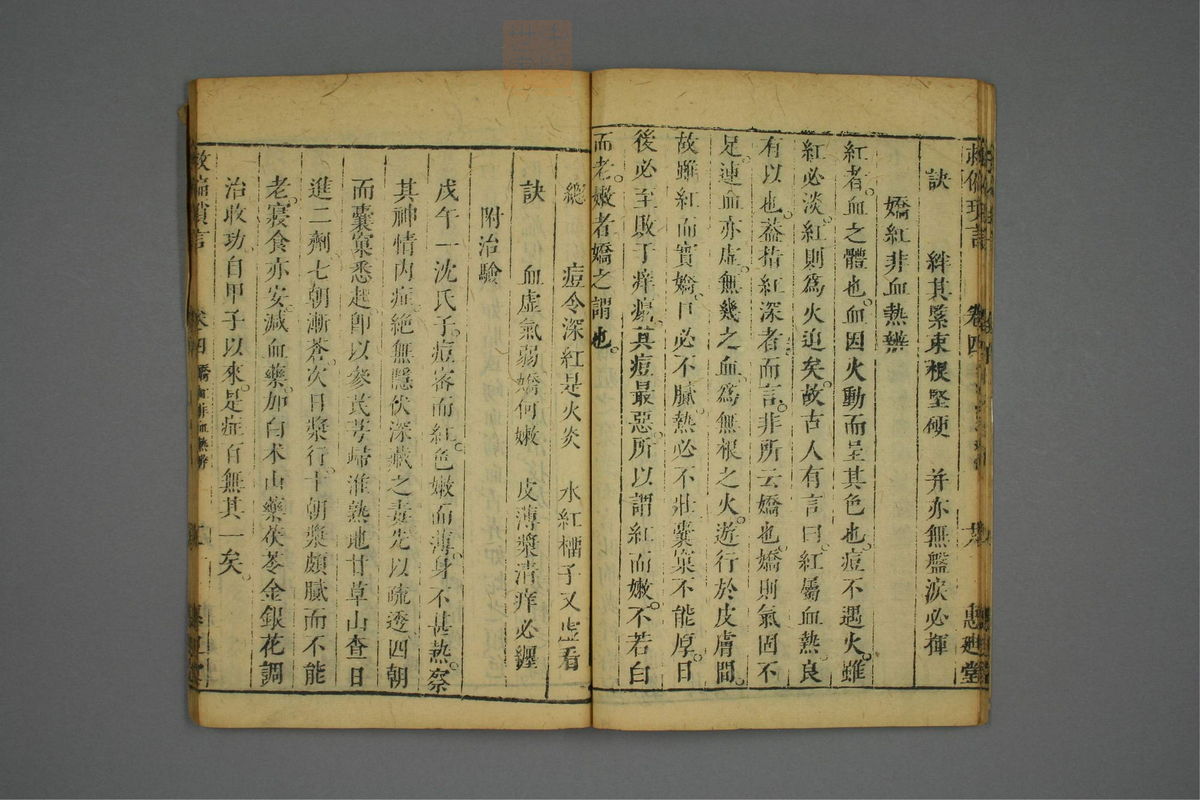 救偏瑣言 卷四
訣 絆其緊束根堅硬 并亦無盤淚必揮
嬌紅非血熱辨
紅者血之體也血因火動而呈其色也痘不遇火雖
紅必淡紅則為火迫矣故古人有言曰紅屬血熱良
有以也葢指紅深者而言非所云嬌也嬌則氣固不
足連血亦虛無幾之血為無根之火遊行於皮膚間
故雖紅而實嬌且必不臟熱必不壯囊窠不能厚日
後必至敗于痒瘍其痘最惡所以謂紅而嫩不若白
而老嫩者嬌之謂也
總 痘令深紅是火炎 水紅橊子又虛看
訣 血虛氣弱嬌何嫩 皮薄漿清痒必纏
附治驗
戊午一沈氏子痘審而紅色嫩而薄身不甚熱察
其神情內症絕無隱伏深藏之毒先以疏透四朝
而囊窠悉起即以參芪芎歸淮熟地甘草山查日
進二劑七朝漸蒼次日漿行十朝漿頗臟而不能
老寢食亦安減血藥加白朮山藥茯苓金銀花調
治收功自甲子以來是症百無其一矣
救偏瑣言 卷四 嬌紅非血熱辨